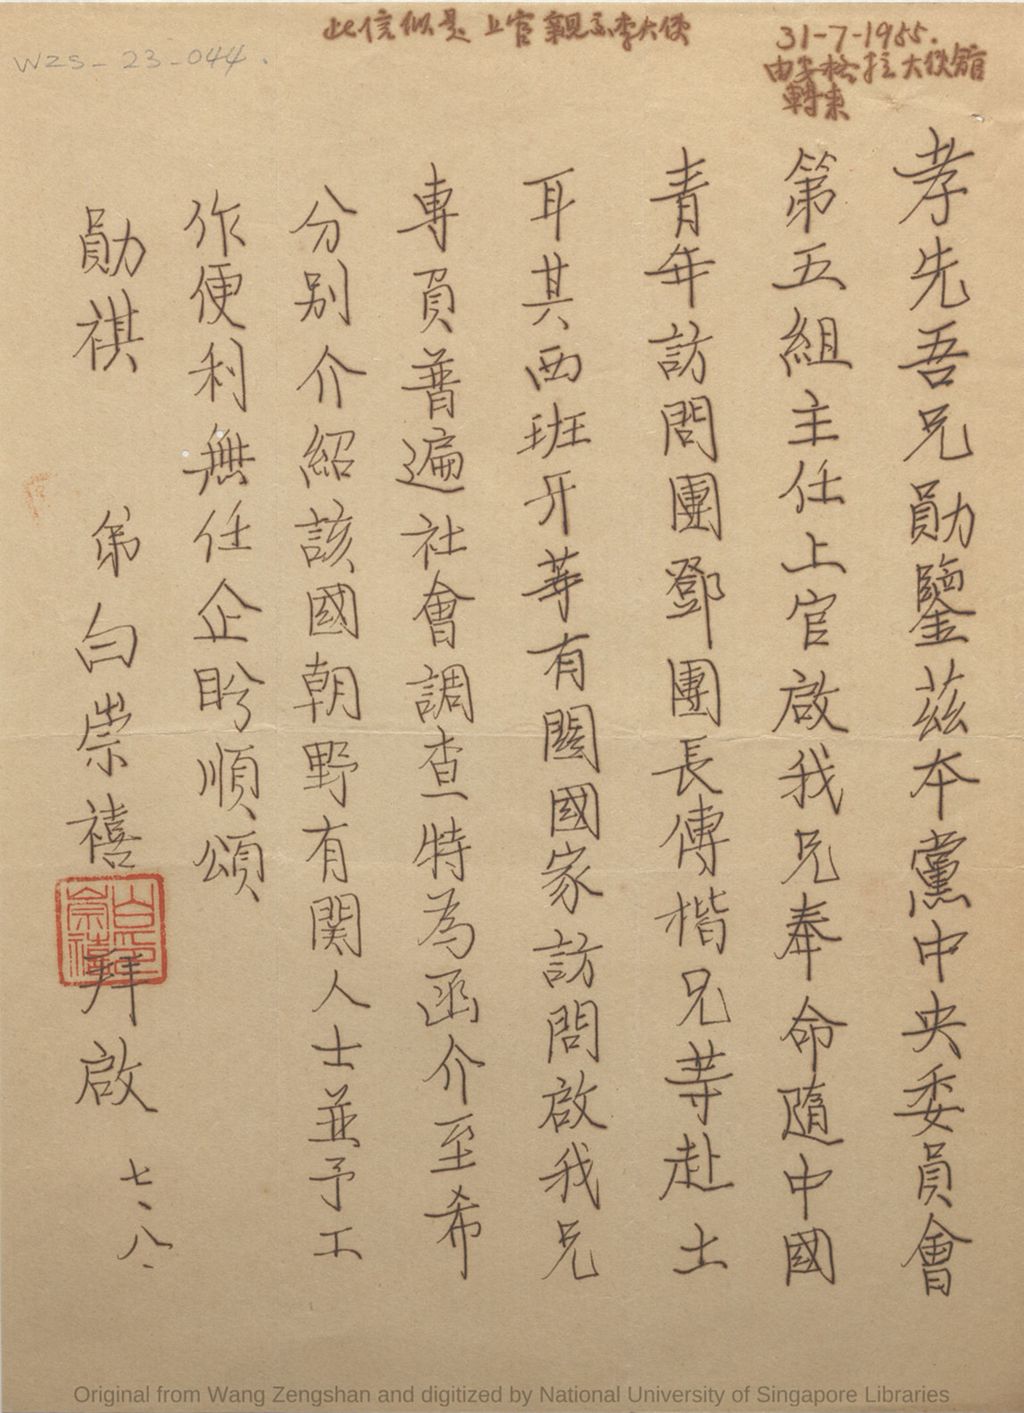 WZS-23-044.
此信似是 上官親示李大使
31-7-1955.
由安松拉大使館
轉來
孝先吾兄勛鑒茲本黨中央委員會
第五組主任上官啟我兄奉命隨中國
青年訪問團鄧團長傳楷兄等赴土
耳其西班牙等有関國家訪問啟我兄
專員普遍社會調查特為函介至希
分別介紹該國朝野有関人士並予工
作便利無任企盼順頌
勛祺
弟白崇禧拜啟 七、八、
白崇禧印
Original from Wang Zengshan and digitized by National University of Singapore Libraries